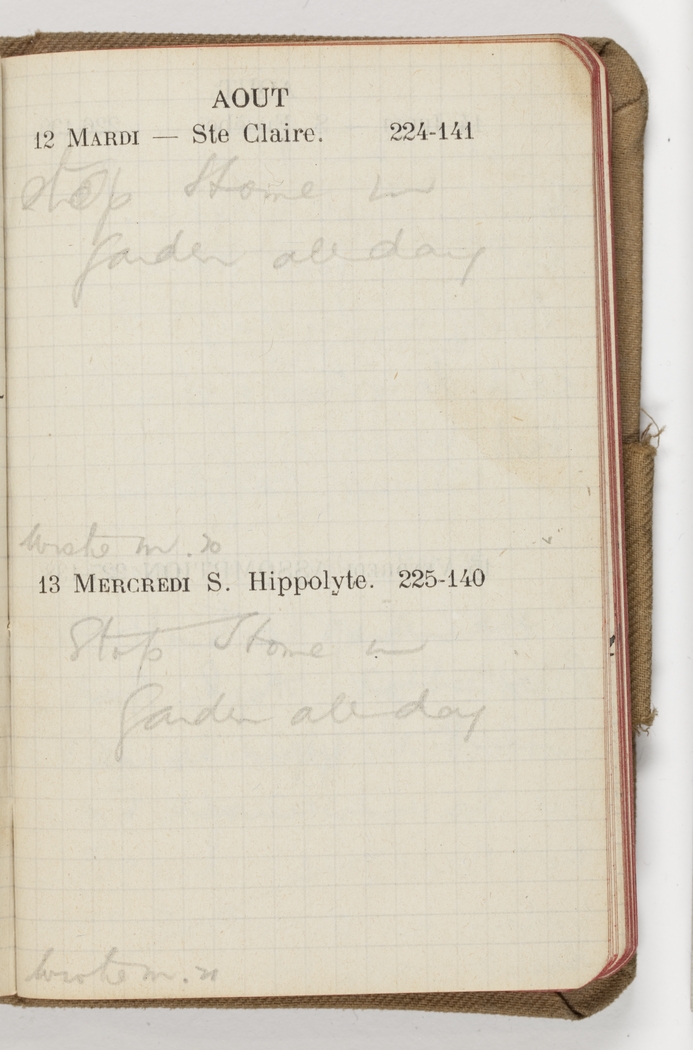 AOUT
12 MARDI — Ste Claire. 224-141
Stop Home in
Garden all day
Wrote M. 20
13 MERCREDI S. Hippolyte. 225-140
Stop Home in
Garden all day
Wrote M. 21